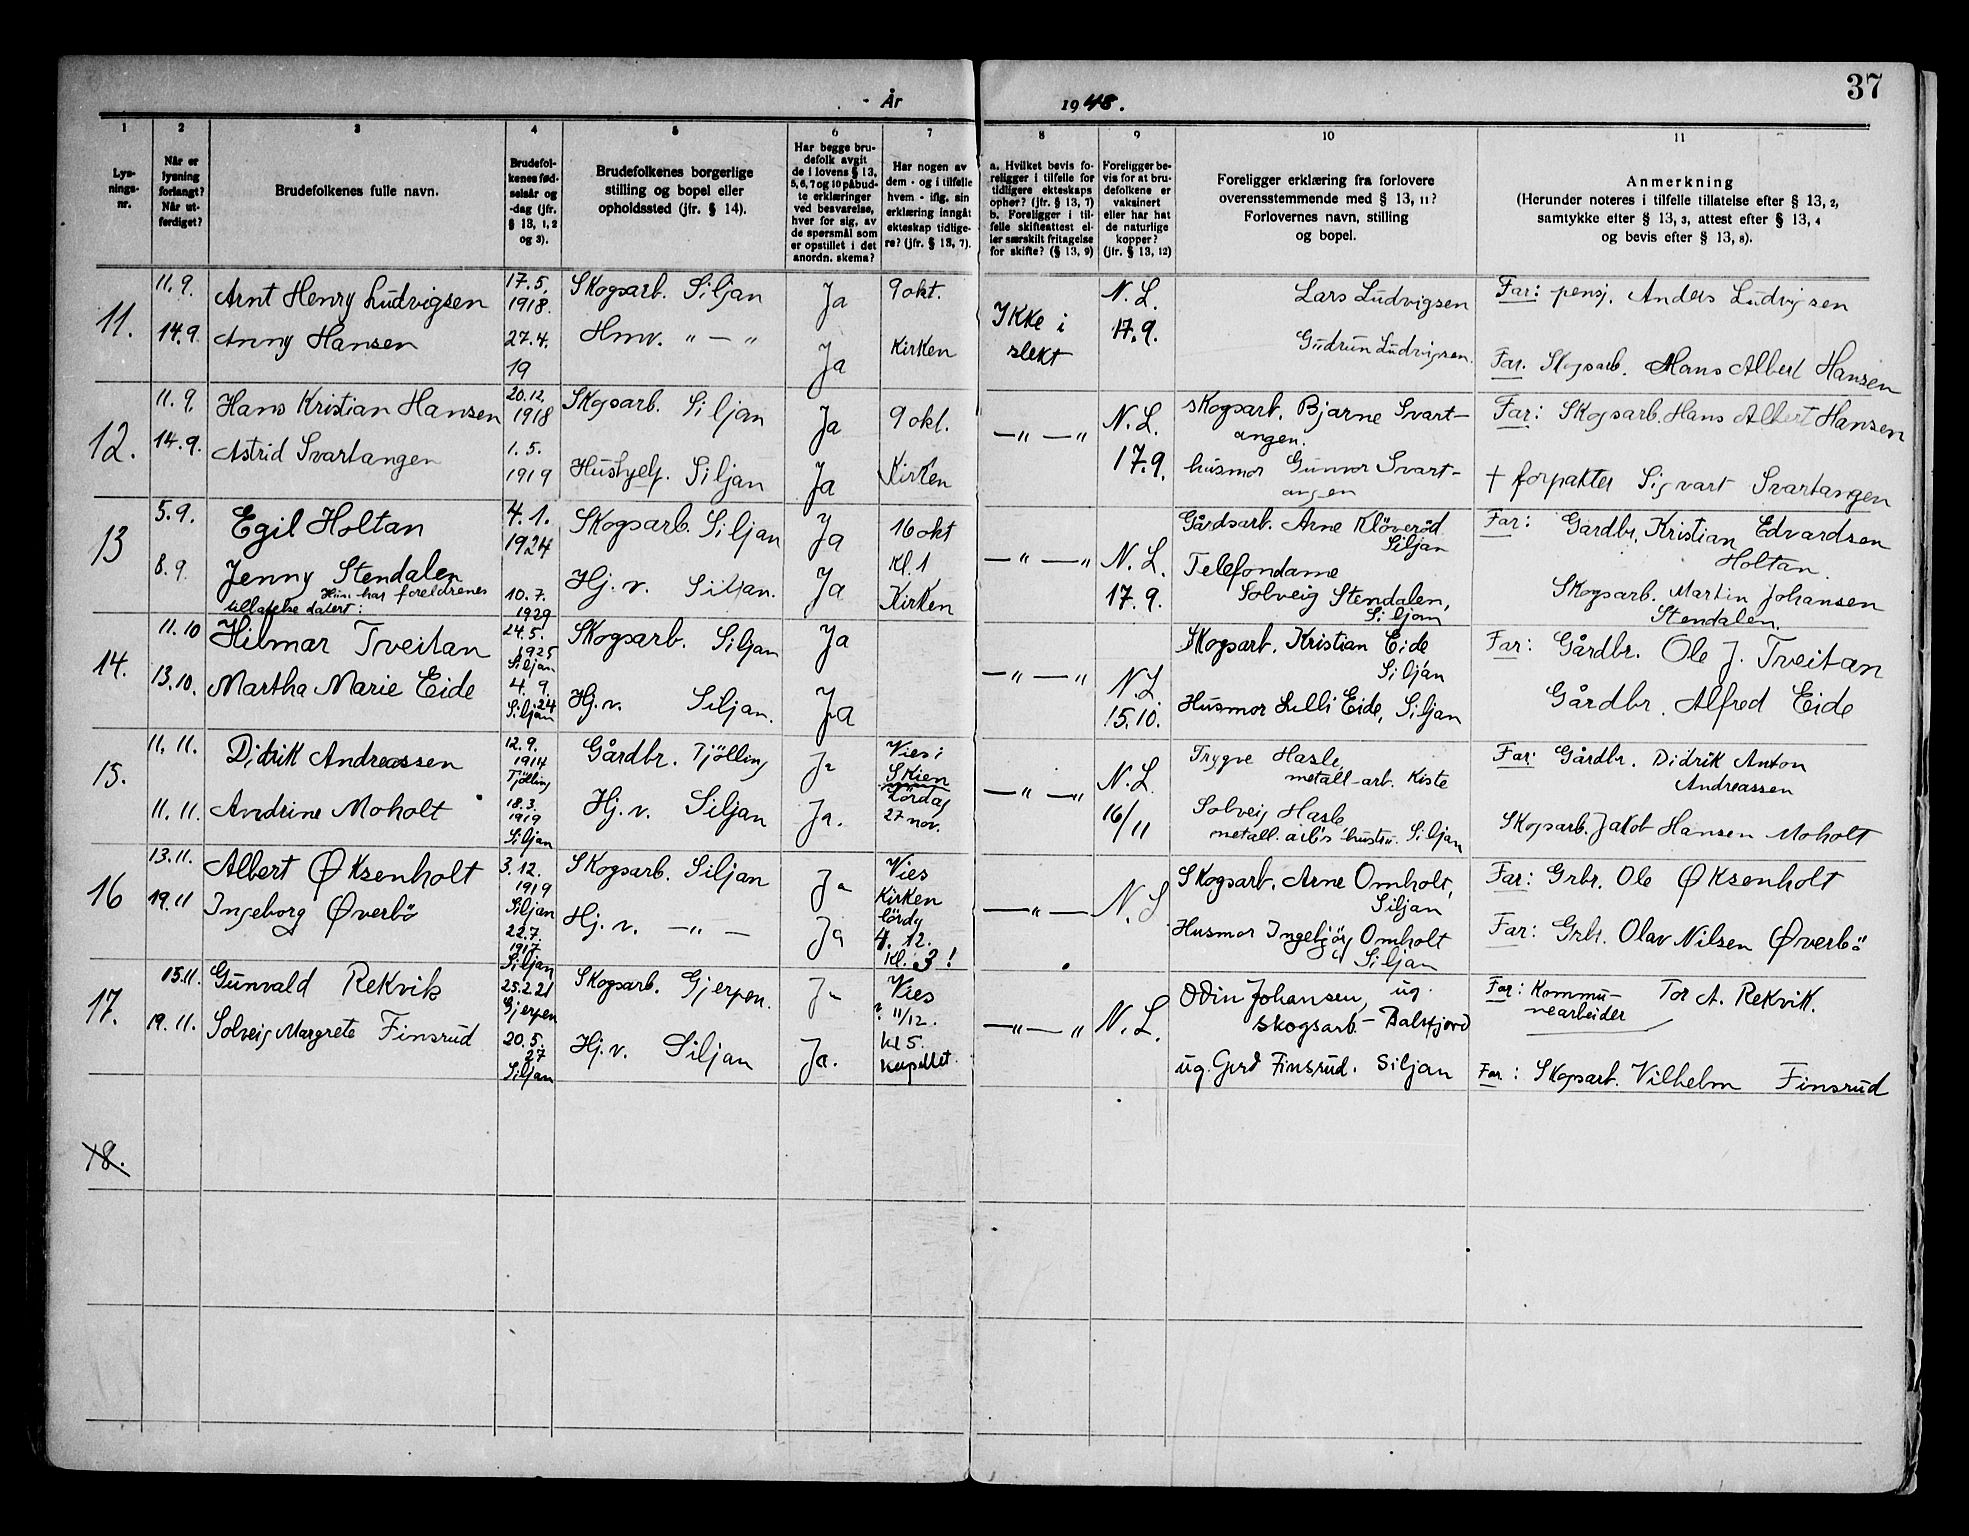 37
År 1948.
1 2 3 4 5 6 7 8 9 10 11
Lysningsnr.
Når er lysning forlangt? Når utferdiget?
Brudefolkenes fulle navn.
Brudefolkenes fødselsår og -dag (jfr. § 13, 1, 2 og 3).
Brudefolkenes borgerlige stilling og bopel eller opholdssted (jfr. § 14).
Har begge brudefolk avgit de i lovens § 13, 5, 6, 7 og 10 påbudte erklæringer ved besvarelse, hver for sig, av de spørsmål som er opstillet i det anordn. skema?
Har nogen av dem - og i tilfelle hvem - iflg. sin erklæring inngåt ekteskap tidligere? (jfr. § 13, 7).
a. Hvilket bevis foreligger i tilfelle for tidligere ekteskaps ophør? (jfr. § 13, 7) b. Foreligger i tilfelle skifteattest eller særskilt fritagelse for skifte? (§ 13, 9)
Foreligger bevis for at brudefolkene er vaksinert eller har hat de naturlige kopper? (jfr. § 13, 12)
Foreligger erklæring fra forlovere overensstemmende med § 13, 11? Forlovernes navn, stilling og bopel.
Anmerkning (Herunder noteres i tilfelle tillatelse efter § 13, 2, samtykke efter § 13, 3, attest efter § 13, 4 og bevis efter § 13, 8).
11. 11.9. Arnt Henry Ludvigsen 17.5. 1918. Skogsarb. Siljan Ja 9 okt. Ikke i slekt N.L. 17.9. Lars Ludvigsen Far: pensj. Anders Ludvigsen
14.9. Anny Hansen 27.4. 19 Hmv. " — " Ja Kirken Gudrun Ludvigsen. Far. Skogsarb. Hans Albert Hansen
12. 11.9. Hans Kristian Hansen 20.12. 1918 Skogsarb. Siljan Ja 9 okt. —"—" N.L. 17.9. Skogsarb. Bjarne Svartangen. Far: Skogsarb. Hans Albert Hansen
14.9. Astrid Svartangen 1.5. 1919 Hushjelp. Siljan Ja Kirken husmor Gunvor Svartangen † forpakter Sigvart Svartangen
13 5.9. Egil Holtan 4.1. 1924 Skogsarb. Siljan Ja 16 okt Kl.1 —"—" N.L. 17.9. Gårdsarb. Arne Kløverød Siljan Far: Gårdbr. Kristian Edvardsen Holtan.
8.9. Jenny Stendalen Hun har foreldrenes tillatelse datert: 10.7. 1929 Hj.v. Siljan. Ja Kirken Telefondame Solveig Stendalen, Siljan Skogsarb. Martin Johansen Stendalen.
14. 11.10 Hilmar Tveitan 24.5. 1925 Siljan Skogsarb. Siljan Ja —"—" N.L. 15.10. Skogsarb. Kristian Eide Siljan Far: Gårdbr. Ole J. Tveitan
13.10. Martha Marie Eide 4.9. 24 Siljan Hj.v. Siljan. Ja Husmor Lilli Eide, Siljan Gårdbr. Alfred Eide
15. 11.11. Didrik Andreassen 12.9. 1914 Tjölling Gårdbr. Tjölling Ja Vies i Skien Lördag 27 nov. —"—" N.L. 16/11 Trygve Hasle, metall-arb. Kiste Far: Gårdbr. Didrik Anton Andreassen
11.11. Andrine Moholt 18.3. 1919 Siljan Hj.v. Siljan Ja. Solveig Hasle metall. arb's hustru. Siljan Skogsarb. Jakob Hansen Moholt
16 13.11. Albert Øksenholt 3.12. 1919 Siljan Skogsarb. Siljan Ja Vies Kirken lördag 4.12. Kl. 3! —"— N.L Skogsarb. Arne Omholt, Siljan Far: Grbr. Ole Øksenholt
19.11 Ingeborg Øverbö 22.7. 1917 Siljan Hj.v. —"— Ja Husmor Ingebjörg Omholt Siljan Far: Grbr. Olav Nilsen Øverbö
17. 15.11. Gunvald Rekvik 25.2.21 Gjerpen Skogsarb. Gjerpen. Ja Vies 11/12. Kl 5. Kapellet. —"—" N.L. Odin Johansen, ug. skogsarb. — Balsfjord Far: Kommunearbeider Tor A. Rekvik.
19.11. Solveig Margrete Finsrud 20.5. 27 Siljan Hj.v. Siljan Ja. ug. Gerd Finsrud. Siljan Far: Skogsarb. Vilhelm Finsrud
18.